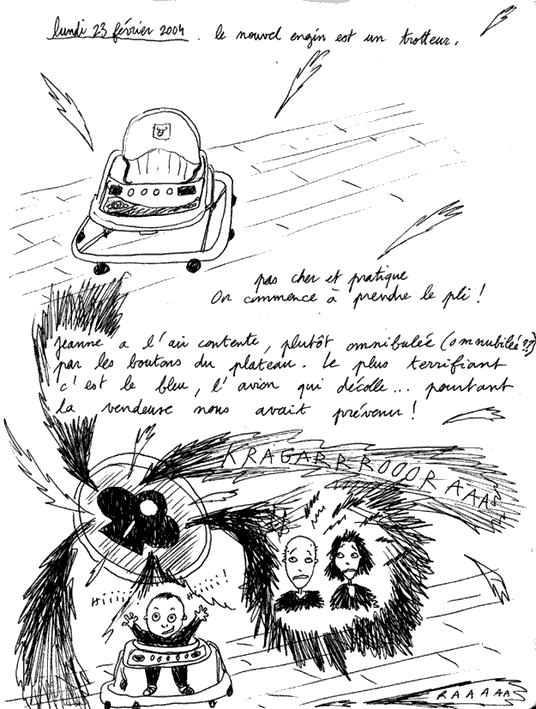 lundi 23 février 2004. le nouvel engin est un trotteur.
pas cher et pratique
On commence à prendre le pli !
Jeanne a l'air contente, plutôt omnibulée (omnubilée ??)
par les boutons du plateau. Le plus terrifiant
c'est le bleu, l'avion qui décolle... pourtant
la vendeuse nous avait prévenu !
KRAGARRROOORAAAS
Hiiiii iiiii!
RAAAAAS